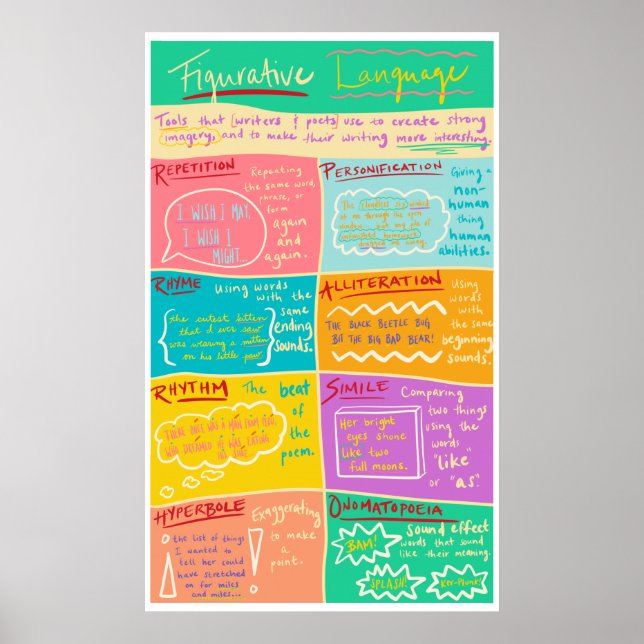 Figurative Language
Tools that [writers & poets] use to create strong
imagery, and to make their writing more interesting.
REPETITION
Repeating
the same word,
phrase, or
form
again
and
again.
I WISH I MAY,
I WISH I
MIGHT...
PERSONIFICATION
Giving a
non-
human
thing
human
abilities.
The cloudless sky winked
at me through the open
window... but my pile of
unfinished homework
dragged me away.
RHYME
Using words
with the
same
ending
sounds.
the cutest kitten
that I ever saw
was wearing a mitten
on his little paw
ALLITERATION
Using
words
with
the same
beginning
sounds.
THE BLACK BEETLE BUG
BIT THE BIG BAD BEAR!
RHYTHM
The beat
of
the
poem.
THERE ONCE WAS A MAN FROM PERU,
WHO DREAMED HE WAS EATING
HIS SHOE...
SIMILE
Comparing
two things
using the
words
"like"
or "as."
Her bright
eyes shone
like two
full moons.
HYPERBOLE
Exaggerating
to
make
a
point.
the list of things
I wanted to
tell her could
have stretched
on for miles
and miles...
ONOMATOPOEIA
sound effect
words that sound
like their meaning.
BAM!
SPLASH!
Ker-Plunk!